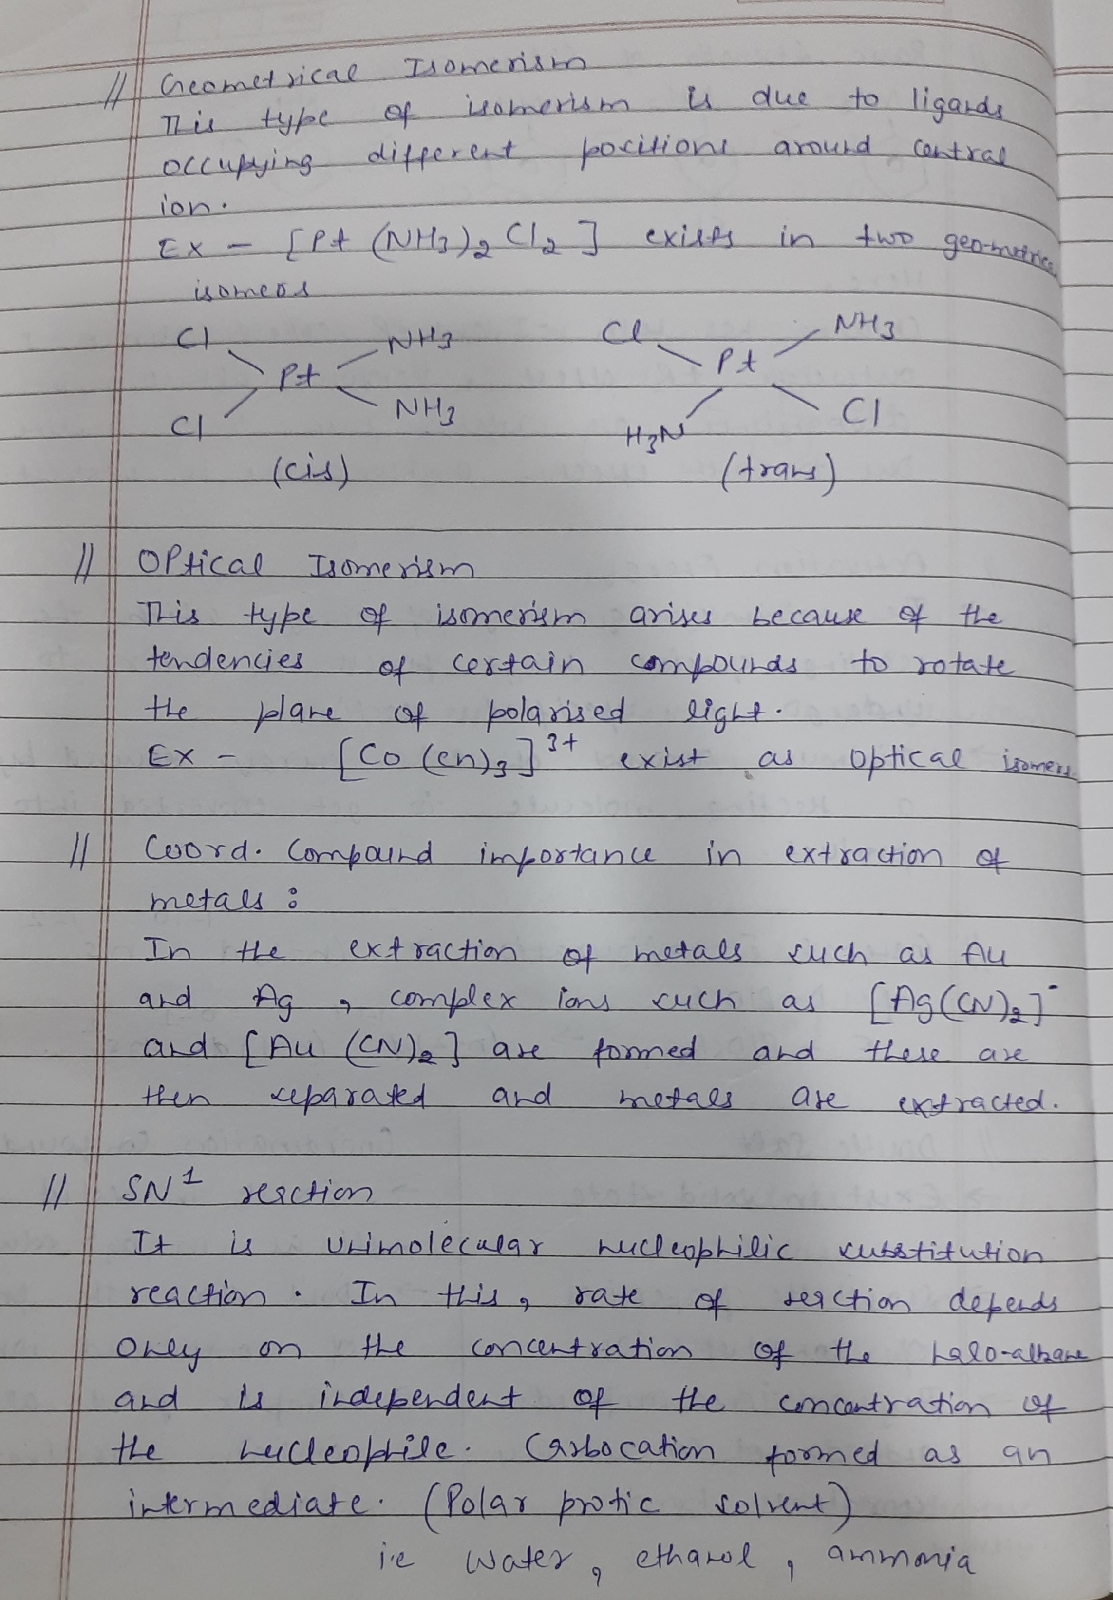 // Geometrical Isomerism
This type of isomerism is due to ligands
occupying different positions around central
ion.
Ex - [Pt (NH3)2 Cl2] exists in two geometrical
isomers
Cl NH3 Cl NH3
Pt Pt
Cl NH3 H3N Cl
(cis) (trans)
// Optical Isomerism
This type of isomerism arises because of the
tendencies of certain compounds to rotate
the plane of polarised light.
Ex - [Co (en)3]3+ exist as optical isomers
// Coord. Compound importance in extraction of
metals :
In the extraction of metals such as Au
and Ag , complex ions such as [Ag(CN)2]-
and [Au (CN)2] are formed and these are
then separated and metals are extracted.
// SN1 reaction
It is unimolecular nucleophilic substitution
reaction. In this, rate of reaction depends
only on the concentration of the halo-alkane
and is independent of the concentration of
the nucleophile. Carbocation formed as an
intermediate. (Polar protic solvent)
i.e water, ethanol, ammonia